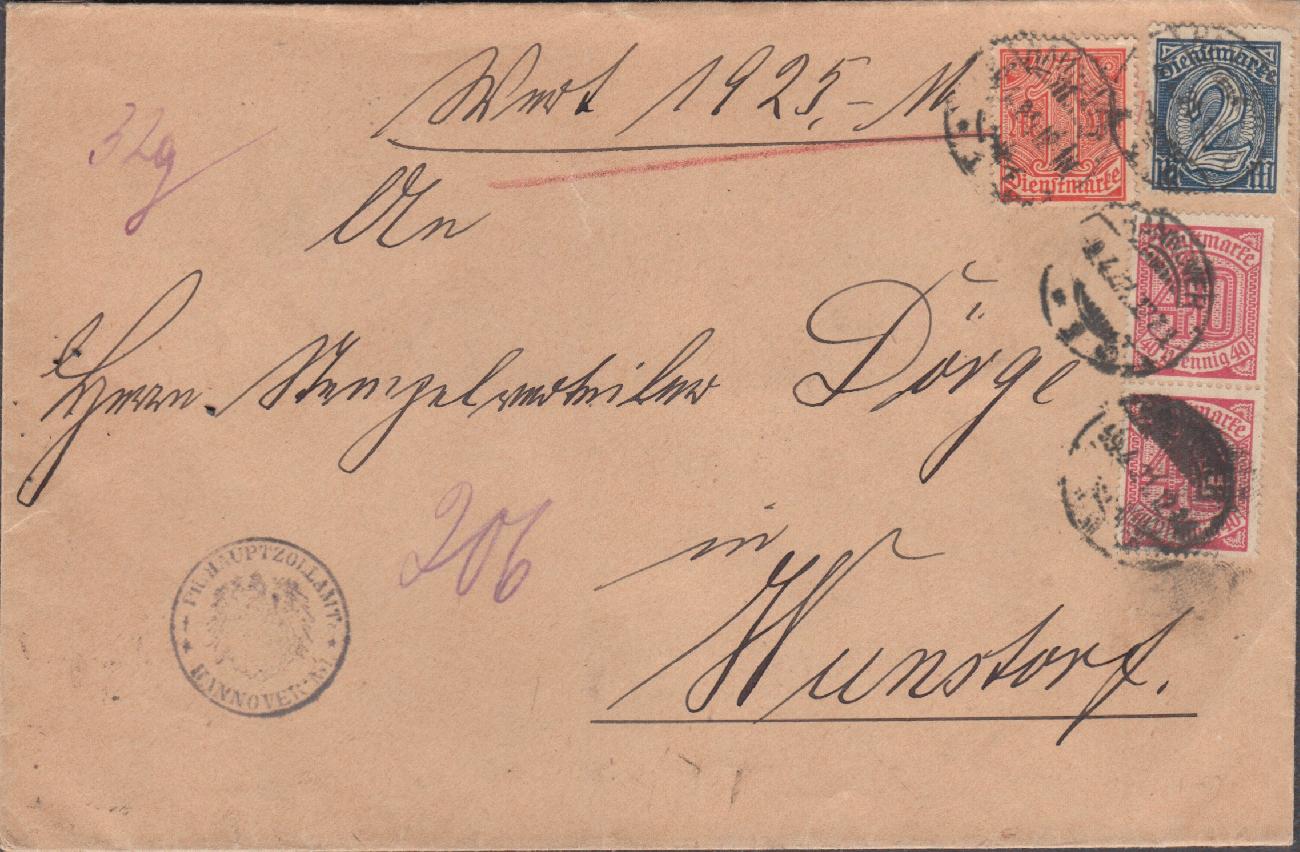 Wert 1925,- M
32g
An
Herrn Stempelverteiler Dörge
in
Wunstorf.
206
PR. HAUPTZOLLAMT
HANNOVER
Dienstmarke
1
Dienstmarke
2
M
Dienstmarke
40
40 Pfennig 40
Dienstmarke
40
HANNOVER